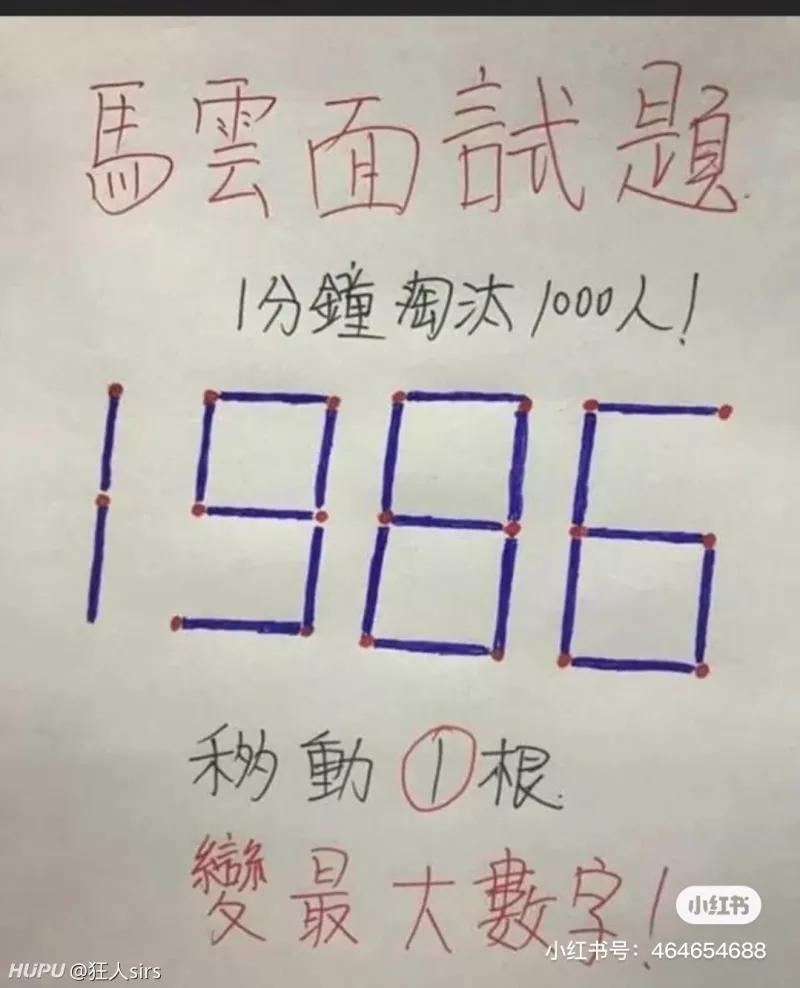 馬雲面試題
1分鐘淘汰1000人!
1986
移動①根.
變最大數字!
小红书
小红书号: 464654688
HUPU @狂人sirs